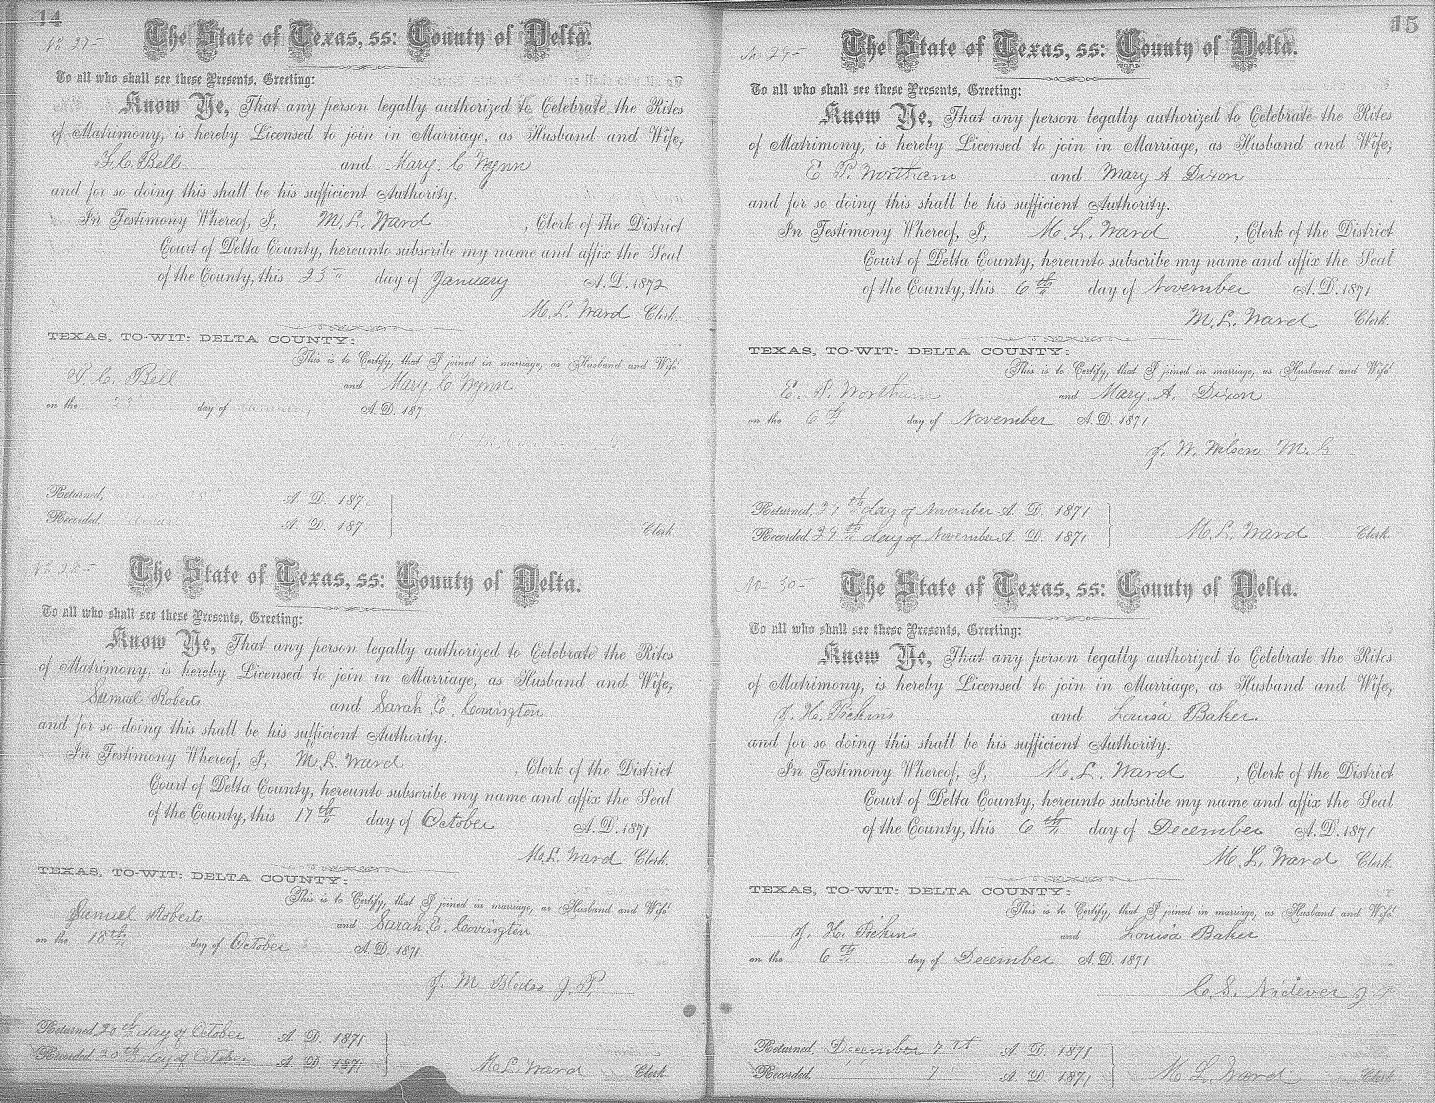 14
No 27-
The State of Texas, ss: County of Delta.
To all who shall see these Presents, Greeting:
Know Ye, That any person legally authorized to Celebrate the Rites
of Matrimony, is hereby Licensed to join in Marriage, as Husband and Wife,
C. Bell and Mary C Wynn
and for so doing this shall be his sufficient Authority.
In Testimony Whereof, I, M. L. Ward , Clerk of the District
Court of Delta County, hereunto subscribe my name and affix the Seal
of the County, this day of January A. D. 1872
M. L. Ward Clerk.
TEXAS, TO-WIT: DELTA COUNTY:
This is to Certify, that I joined in marriage, as Husband and Wife
C. Bell and Mary C Wynn
on the day of A. D. 187
Returned, A. D. 187
Recorded, A. D. 187 Clerk
No 28-
The State of Texas, ss: County of Delta.
To all who shall see these Presents, Greeting:
Know Ye, That any person legally authorized to Celebrate the Rites
of Matrimony, is hereby Licensed to join in Marriage, as Husband and Wife,
Samuel Roberts and Sarah E. Covington
and for so doing this shall be his sufficient Authority.
In Testimony Whereof, I, M. L. Ward , Clerk of the District
Court of Delta County, hereunto subscribe my name and affix the Seal
of the County, this 17th day of October A. D. 1871
M. L. Ward Clerk.
TEXAS, TO-WIT: DELTA COUNTY:
This is to Certify, that I joined in marriage, as Husband and Wife
Samuel Roberts and Sarah E. Covington
on the 18th day of October A. D. 1871
J. M J. P.
Returned 20th day of October A. D. 1871
Recorded 20th day of October A. D. 1871 M. L. Ward Clerk
15
The State of Texas, ss: County of Delta.
To all who shall see these Presents, Greeting:
Know Ye, That any person legally authorized to Celebrate the Rites
of Matrimony, is hereby Licensed to join in Marriage, as Husband and Wife,
E P. Wortham and Mary A Dixon
and for so doing this shall be his sufficient Authority.
In Testimony Whereof, I, M. L. Ward , Clerk of the District
Court of Delta County, hereunto subscribe my name and affix the Seal
of the County, this 6th day of November A. D. 1871
M. L. Ward Clerk.
TEXAS, TO-WIT: DELTA COUNTY:
This is to Certify, that I joined in marriage, as Husband and Wife
E. P. Wortham and Mary A. Dixon
on the 6th day of November A. D. 1871
J. W. Wilson M. G
Returned, day of November A. D. 1871
Recorded, day of November A. D. 1871 M. L. Ward Clerk.
No- 30-
The State of Texas, ss: County of Delta.
To all who shall see these Presents, Greeting:
Know Ye, That any person legally authorized to Celebrate the Rites
of Matrimony, is hereby Licensed to join in Marriage, as Husband and Wife,
J. H. Pickins and Louisa Baker
and for so doing this shall be his sufficient Authority.
In Testimony Whereof, I, M. L. Ward , Clerk of the District
Court of Delta County, hereunto subscribe my name and affix the Seal
of the County, this 6th day of December A. D. 1871
M. L. Ward Clerk.
TEXAS, TO-WIT: DELTA COUNTY:
This is to Certify, that I joined in marriage, as Husband and Wife
J. H. Pickins and Louisa Baker
on the 6th day of December A. D. 1871
C. S. Nidever J. P.
Returned, December 7th A. D. 1871
Recorded, 7 A. D. 1871 M L Ward Clerk